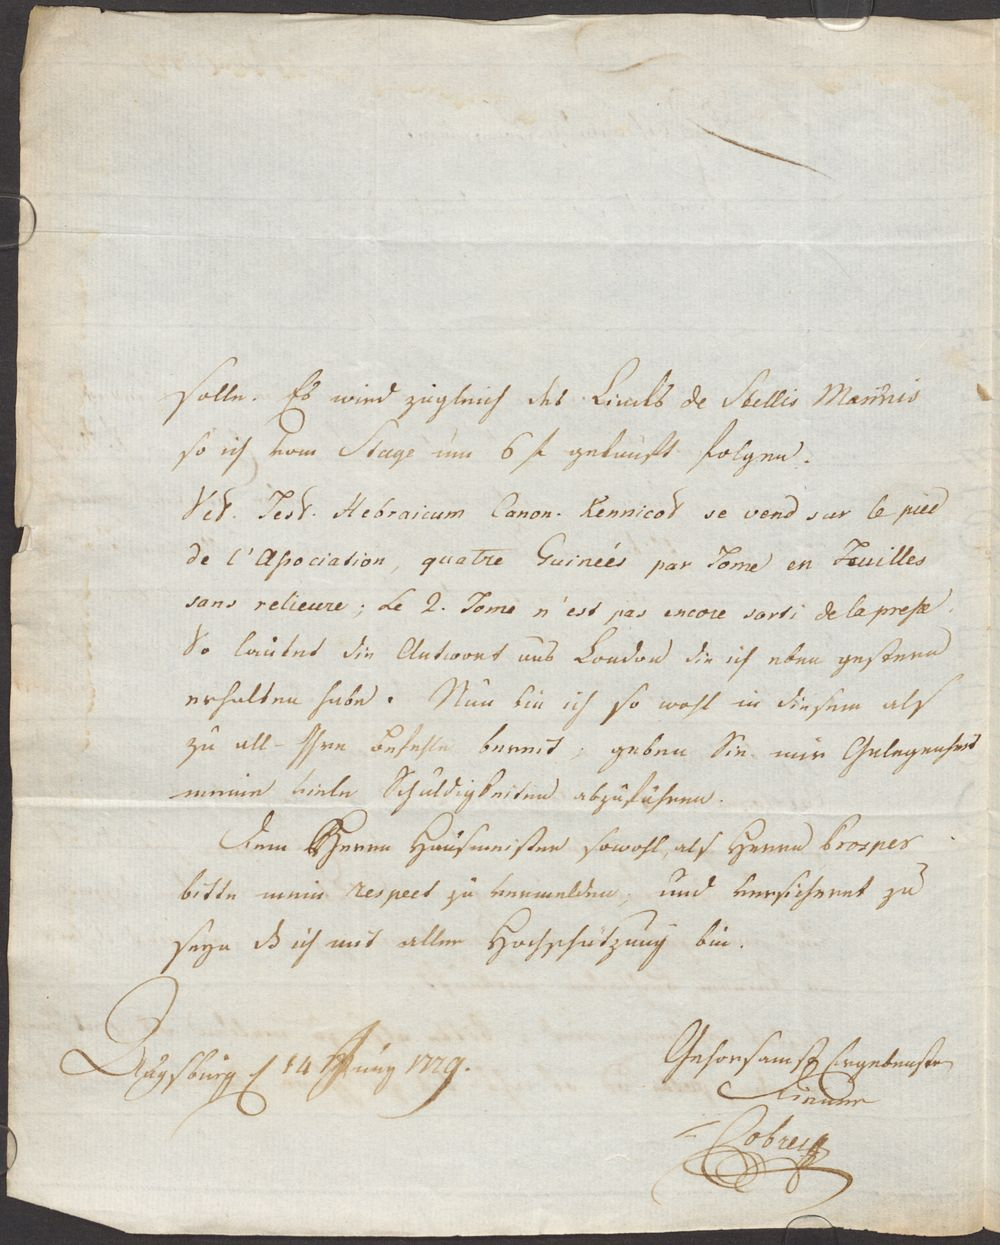 solle. Es wird zugleich das Linckb de Stellis Marinis
so ich vom Stage um 6 f gekauft folgen.
Vet. Test. Hebraicum Canon. Kennicot se vend sur le pied
de l'Association, quatre Guineés par Tome en Feuilles
sans relieure; Le 2. Tome n'est pas encore sorti de la presse.
So lautet die Antwort aus London die ich eben gestern
erhalten habe. Nun bin ich so wohl in diesem als
zu all- Ihre Befehle bereit; geben Sie mir Gelegenheit
meine viele Schuldigkeiten abzuführen.
Dem Herrn Hausmeister sowohl, als Herrn Prosper
bitte mein Respect zu vermelden, und versichert zu
seyn dß ich mit aller Hochschätzung bin.
Augsburg d 14 Juny 1779.
Gehorsamst Ergebenster
Diener
Cobres